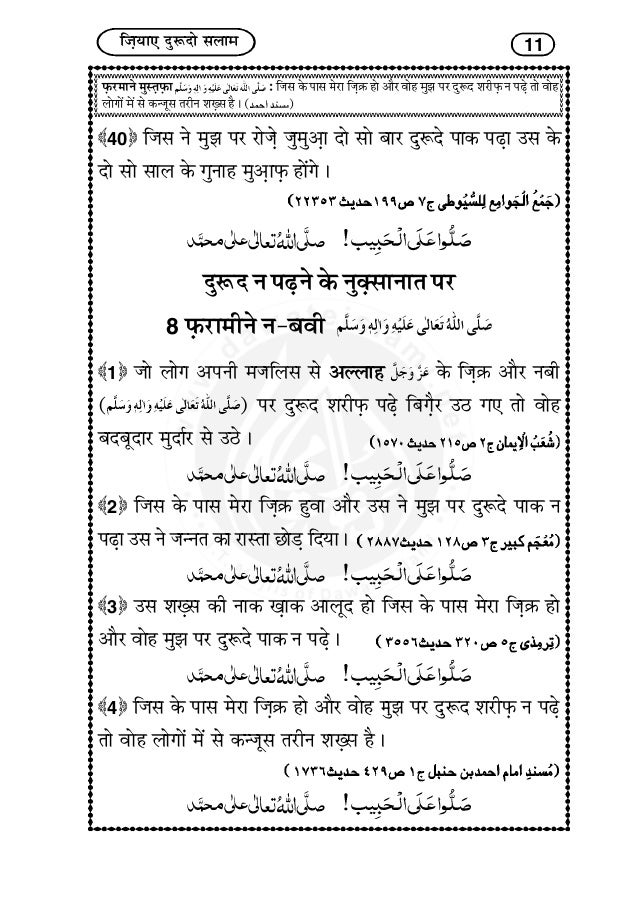 ज़ियाए दुरूदो सलाम
11
फ़रमाने मुस्तफ़ा صَلَّى اللهُ تَعَالٰى عَلَيْهِ وَاٰلِهٖ وَسَلَّم : जिस के पास मेरा ज़िक्र हो और वोह मुझ पर दुरूद शरीफ़ न पढ़े तो वोह
लोगों में से कन्जूस तरीन शख़्स है । (مسند احمد)
﴾40﴿ जिस ने मुझ पर रोज़े जुमुआ़ दो सो बार दुरूदे पाक पढ़ा उस के
दो सो साल के गुनाह मुआ़फ़ होंगे ।
(جَمْعُ الْجَوامِع لِلسُّيُوطى ج٧ ص١٩٩ حديث ٢٢٣٥٣)
صَلُّوا عَلَى الْحَبِيب! صلَّى اللهُ تعالىٰ على محمَّد
दुरूद न पढ़ने के नुक़्सानात पर
8 फ़रामीने न-बवी صَلَّى اللهُ تَعَالٰى عَلَيْهِ وَاٰلِهٖ وَسَلَّم
﴾1﴿ जो लोग अपनी मजलिस से अल्लाह عَزَّ وَجَلَّ के ज़िक्र और नबी
(صَلَّى اللهُ تَعَالٰى عَلَيْهِ وَاٰلِهٖ وَسَلَّم) पर दुरूद शरीफ़ पढ़े बिग़ैर उठ गए तो वोह
बदबूदार मुर्दार से उठे । (شُعَبُ الْاِيمان ج٢ ص٢١٥ حديث ١٥٧٠)
صَلُّوا عَلَى الْحَبِيب! صلَّى اللهُ تعالىٰ على محمَّد
﴾2﴿ जिस के पास मेरा ज़िक्र हुवा और उस ने मुझ पर दुरूदे पाक न
पढ़ा उस ने जन्नत का रास्ता छोड़ दिया । (مُعْجَم كبير ج٣ ص١٢٨ حديث ٢٨٨٧)
صَلُّوا عَلَى الْحَبِيب! صلَّى اللهُ تعالىٰ على محمَّد
﴾3﴿ उस शख़्स की नाक ख़ाक आलूद हो जिस के पास मेरा ज़िक्र हो
और वोह मुझ पर दुरूदे पाक न पढ़े । (تِرمِذى ج٥ ص٣٢٠ حديث ٣٥٥٦)
صَلُّوا عَلَى الْحَبِيب! صلَّى اللهُ تعالىٰ على محمَّد
﴾4﴿ जिस के पास मेरा ज़िक्र हो और वोह मुझ पर दुरूद शरीफ़ न पढ़े
तो वोह लोगों में से कन्जूस तरीन शख़्स है ।
(مُسندِ امام احمد بن حنبل ج١ ص٤٢٩ حديث ١٧٣٦)
صَلُّوا عَلَى الْحَبِيب! صلَّى اللهُ تعالىٰ على محمَّد